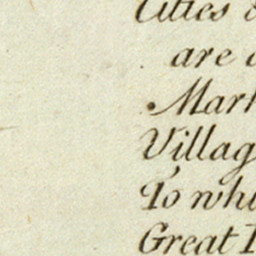 Cities &
are
Mark
Villag
To whi
Great